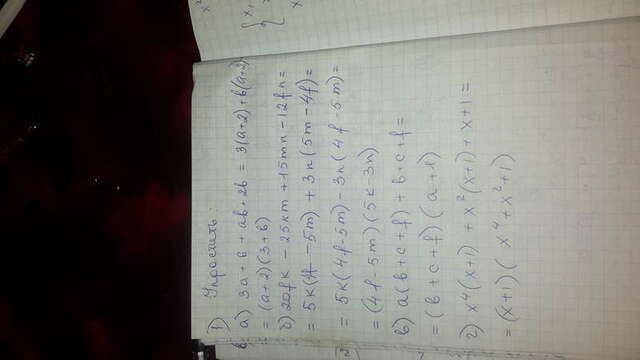 1) Упростить:
а) 3a + 6 + ab + 2b = 3(a+2) + b(a+2)
= (a+2)(3+b)
б) 20fk - 25km + 15mn - 12fn =
= 5k(4f - 5m) + 3n(5m - 4f) =
= 5k(4f-5m) - 3n(4f-5m) =
= (4f-5m)(5k-3n)
в) a(b+c+f) + b+c+f =
= (b+c+f)(a+1)
г) x⁴(x+1) + x²(x+1) + x+1 =
= (x+1)(x⁴+x²+1)